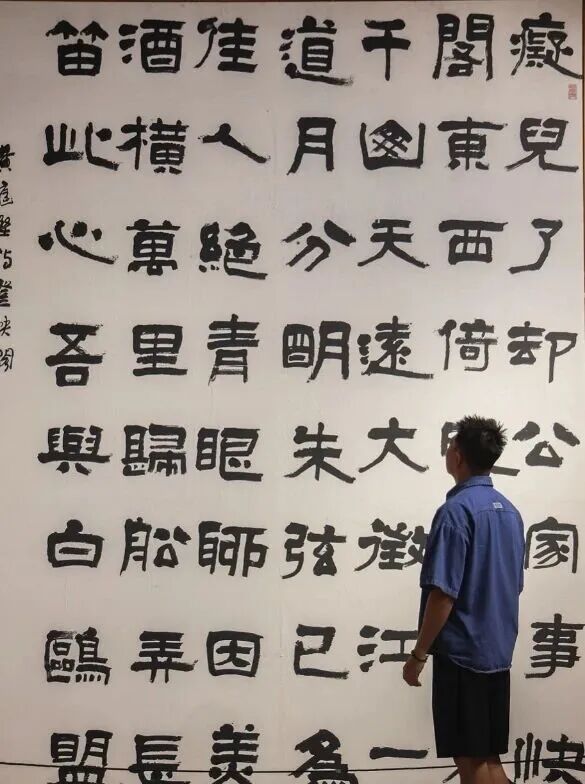 癡兒了却公家事快
閣東西倚
千山天遠大澂江一
道月分明朱弦已為
佳人絕青眼聊因美
酒橫萬里歸船弄長
笛此心吾與白鷗盟
黃庭堅詩登快閣